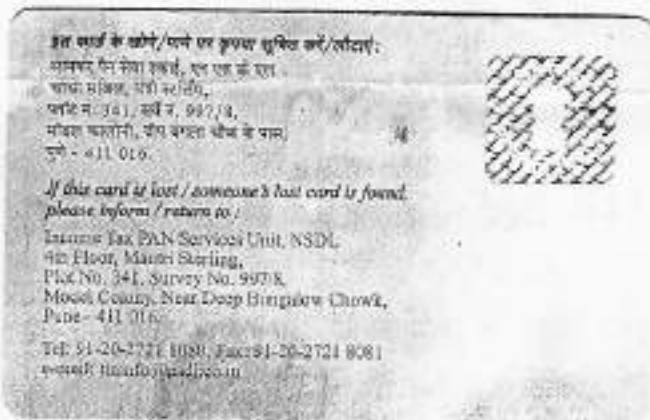 इस कार्ड के खोने/पाने पर कृपया सूचित करें/लौटाएं:
आयकर पैन सेवा इकाई, एन एस डी एल
मंत्री स्टर्लिंग,
प्लॉट नं. 341, सर्वे नं. 997/8,
मॉडल कालोनी, दीप बंगला चौक के पास,
पुणे - 411 016.
If this card is lost / someone's lost card is found,
please inform / return to :
Income Tax PAN Services Unit, NSDL
4th Floor, Mantri Sterling,
Plot No. 341, Survey No. 997/8,
Model Colony, Near Deep Bungalow Chowk,
Pune - 411 016.
Tel: 91-20-2721 8080, Fax: 91-20-2721 8081
e-mail: tininfo@nsdl.co.in